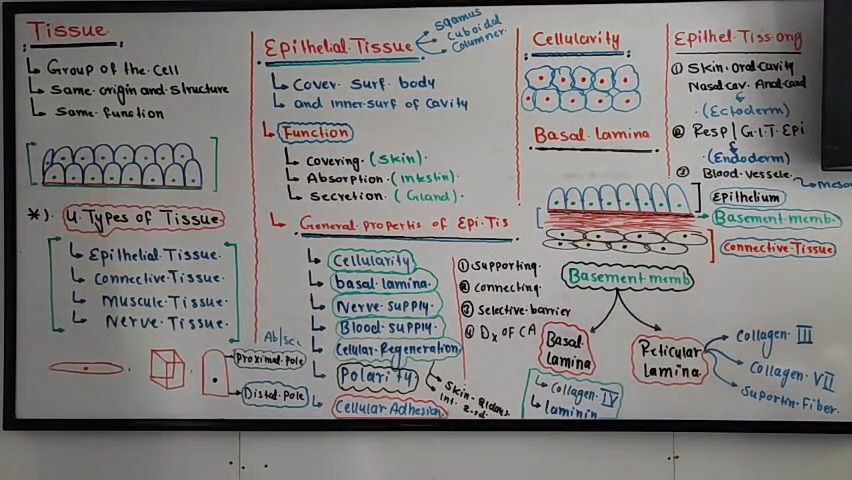 Tissue
Group of the cell
Same origin and structure
Same function
*). 4 Types of Tissue
Epithelial Tissue
Connective Tissue
Muscule Tissue
Nerve Tissue
Proximal pole
Distal pole
Epithelial Tissue
Sqamus
Cuboidal
Columner
Cover surf body
and inner surf of cavity
Function
Covering (Skin)
Absorption (intestin)
Secretion (Gland)
General propertis of Epi Tis
Cellularity
basal lamina
Nerve supply
Blood supply
Cellular Regeneration
Polarity
Cellular Adhesion
① Supporting
② Connecting
③ Selective barrier
④ Dx of CA
Cellularity
Basal lamina
Epithelium
Basement memb.
Connective Tissue
Basement memb
Basal lamina
Collagen IV
laminin
Reticular lamina
Collagen III
Collagen VII
Suportin Fiber
Epithel Tiss ong
① Skin oral cavity
Nasal cav. Anal canal
(Ectoderm)
② Resp / G.I.T Epi
(Endoderm)
③ Blood vessele
meso